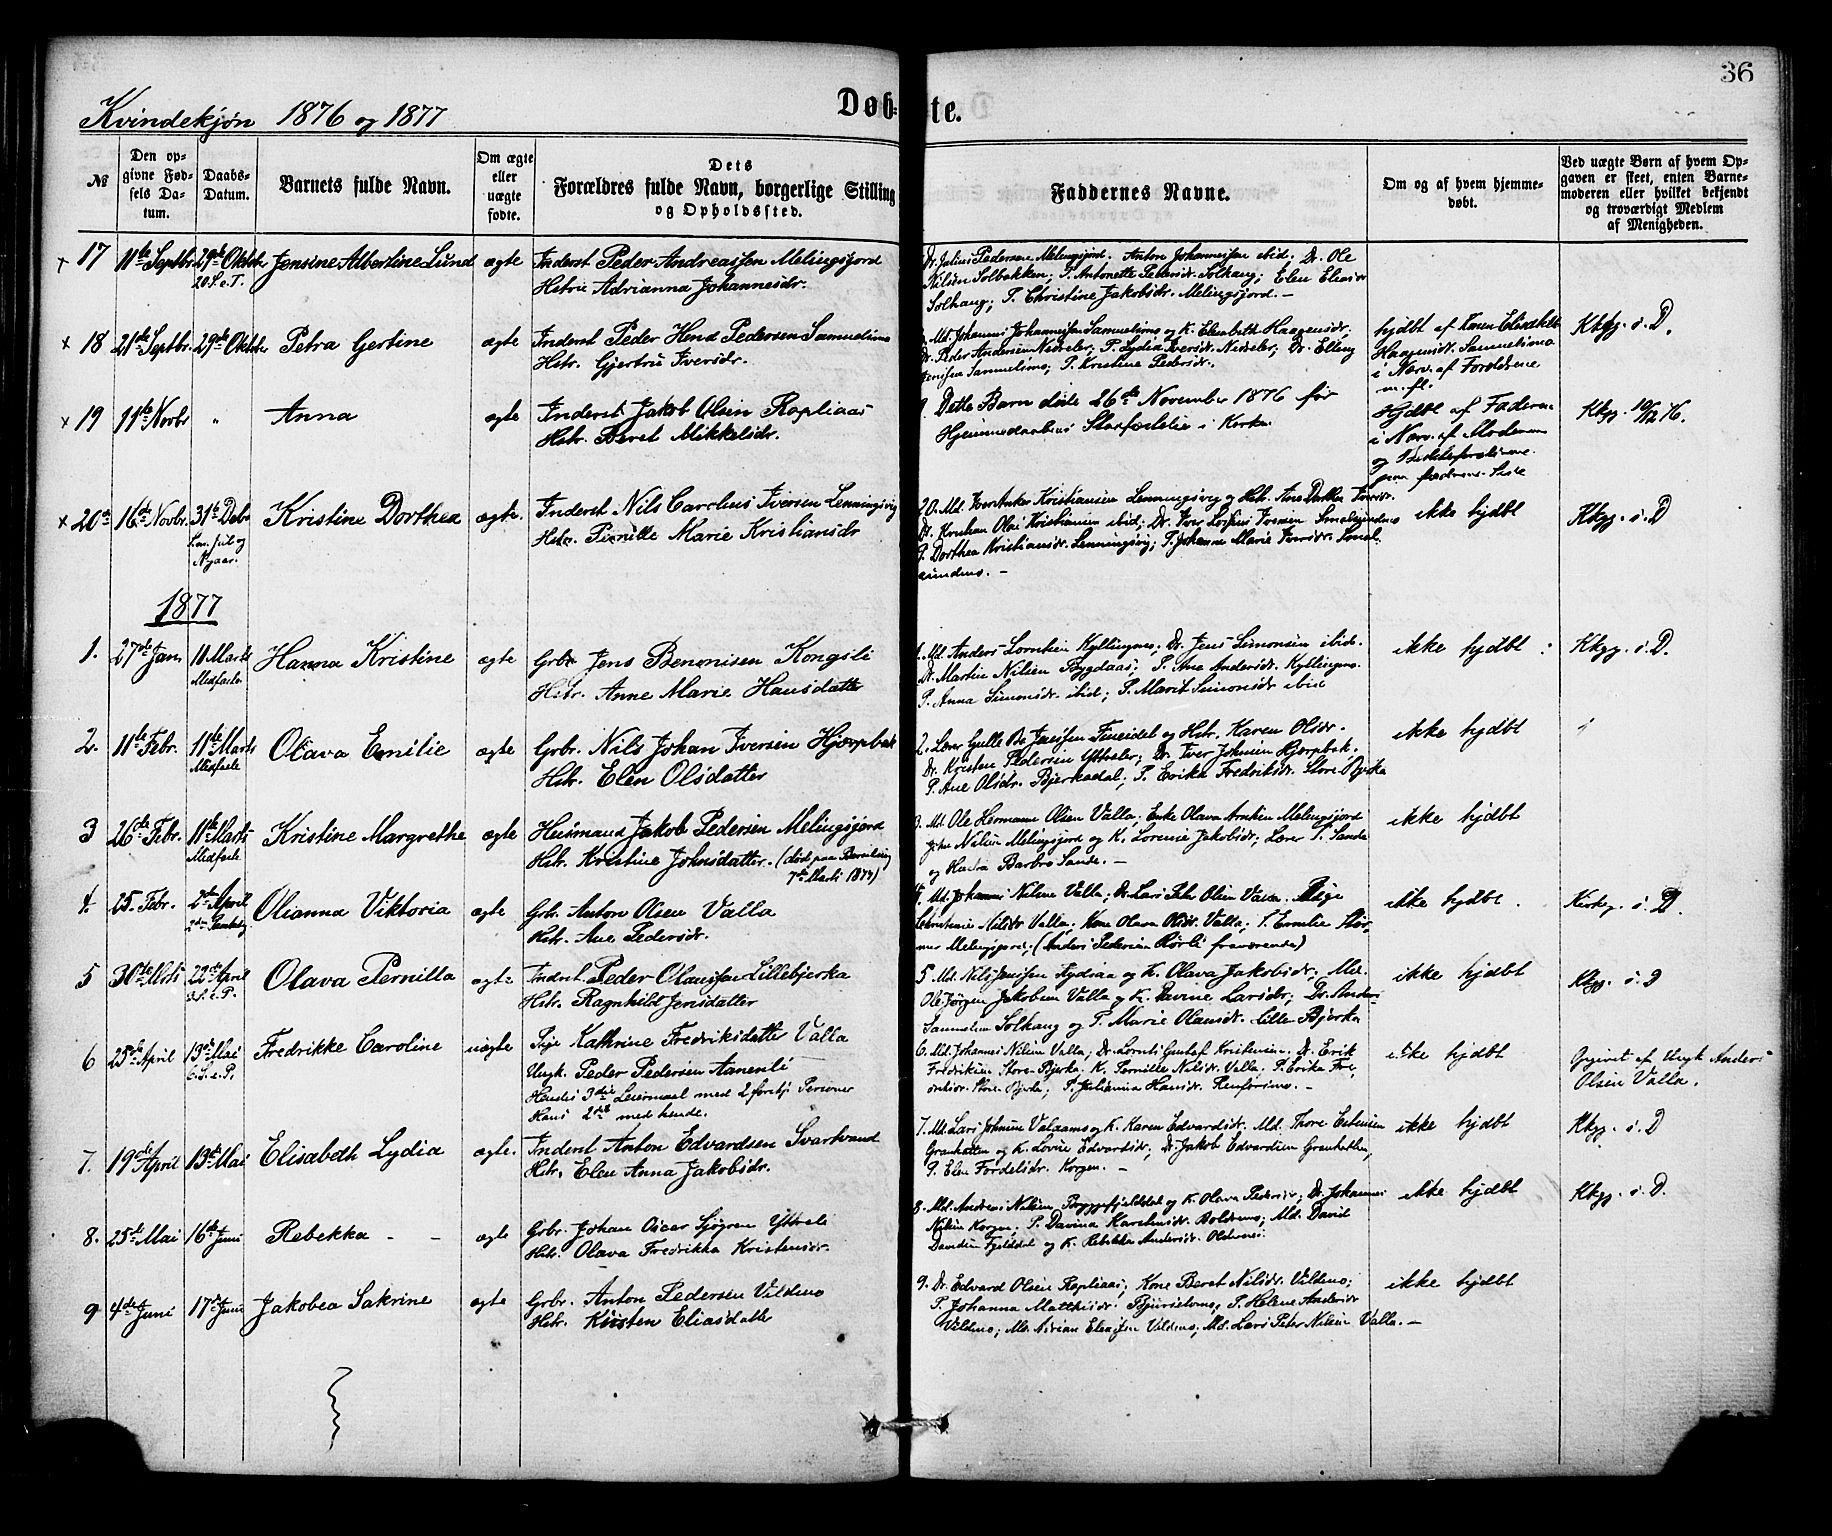 36
Kvindekjøn 1876 og 1877
Døbte.
№
Den opgivne Fødsels Datum.
Daabs-Datum.
Barnets fulde Navn.
Om ægte eller uægte fødte.
Dets Forældres fulde Navn, borgerlige Stilling og Opholdssted.
Faddernes Navne.
Om og af hvem hjemmedøbt.
Ved uægte Børn af hvem Opgaven er skeet, enten Barnemoderen eller hvilket bekjendt og troværdigt Medlem af Menigheden.
17 11te Septbr. 29de Oktbr. Jensine Albertine Lund ægte Inderst Peder Andreassen Melingsjord
20 S. e. T. Hstru Adrianna Johannesdr.
Dr. Julius Pedersen Melingsjord. Anton Johannessen ibid. Dr. Ole
Nilsen Solbakken; P. Antonette Pedersdr. Solhaug; Elen Eliasdr
Solhaug; P. Christine Jakobsdr. Melingsjord. —
x 18 21de Septbr. 29de Oktbr Petra Gertine ægte Inderst Peder Hend Pedersen Samuelsmo
Hstr. Gjertru Iversdr.
Md. Johannes Johannessen Samuelsmo og K. Elisabeth Haagensdr.
Dr. Peder Andersen Nedreler; P. Lydia Iversdr. Nedreler; Dr. Elling
Jensen Samuelsmo; P. Kristine Pedersdr.
hjdbt af Karen Elisabeth
Haagensdr. Samuelsmo
i Nærv. af Forældrene
m. fl.
Kkgg. s. D.
x 19 11te Novbr " Anna ægte Inderst Jakob Olsen Rapliaas
Hstr. Beret Mikkelsdr.
Dette Barn døde 26de November 1876 før
Hjemmedaabens Stadfæstelse i Kirken
Hjdbt af Faderen
i Nærv. af Moderen
og Bedsteforældrene
paa fædrene Side
Kkgg. 10/12 76.
x 20de 16de Novbr. 31te Debr Kristine Dorthea ægte. Inderst Nils Carelius Iversen Lenningsvig
S. m. Jul og Nyaar. Hstr. Pernille Marie Kristiansdr
20. Md. Iver Anker Kristiansen Lenningsvig og Hstr. Ane Dorthea Iversdr.
Dr. Kristian Olai Kristiansen ibid; Dr. Iver Iversen Smalsundmo
P. Dorthea Kristiansdr. Lenningsvig; P. Johanna Marie Iversdr. Smal-
sundmo. —
ikke hjdbt
Kkgg. s. D
1877
1. 27de Jan. 11 Marts Hanna Kristine ægte Grbr. Jens Benonisen Kongsli
Midfaste Hstr. Anne Marie Hansdatter
1. Md. Anders Lorntsen Kyllingmo; Dr. Jens Simonsen ibid.
Dr. Martin Nilsen Bygdaas; P. Ane Andersdr. Kyllingmo.
P. Anna Simonsdr. ibid; P. Marit Simonsdr ibid
ikke hjdbt
Kkgg. s. D.
2. 11te Febr. 11te Marts Olava Emilie ægte Grbr. Nils Johan Iversen Hjorpbak
Midfaste Hstr. Elen Olsdatter
2. Lærer Gulle Bo Jensen Fineidet og Hstr. Karen Olsdr.
Dr. Kristen Pedersen Ytteler; Dr. Iver Johnsen Hjorpbak.
P. Ane Olsdr. Bjerkadal; P. Erika Fredriksdr. Store Bjerka
ikke hjdbt
"
3 26de Febr. 11te Marts Kristine Margrethe ægte Huusmand Jakob Pedersen Melingsjord
Midfaste Hstr. Kristine Johnsdatter. (død paa Barselseng
7de Marts 1877)
3. Md. Ole Hermann Olsen Valla; Enke Olava Arntsen Melingsjord
John Nilsen Melingsjord og K. Lorense Jakobsdr; Lærer P. Sande
og Hustru Barbro Sande. —
ikke hjdbt
4. 25. Febr. 2den April Olianna Viktoria ægte Grbr. Anton Olsen Valla
2den Paaskedg Hstr. Ane Pedersdr.
4. Md. Johannes Nilsen Valla; Dr. Lars Peter Olsen Valla. Pige
Christiane Nilsdr Valla; Kone Olava Olsdr. Valla; P. Emilie Thor-
Melingsjord; (Anders Pedersen Rørli fraværende)
ikke hjdbt.
Kirkg. s. D.
5 30te Mts 22de April Olava Pernilla ægte Inderst. Peder Olaussen Lillebjerka
3. S. e. P. Hstr. Ragnhild Jensdatter
5 Md. Nils Jenssen Fygdiaa og K. Olava Jakobsdr; Md.
Ole Jørgen Jakobsen Valla og K. Davine Larsdr; Dr. Anders
Samuelsen Solhaug og P. Marie Olausdr. Lille Bjerka
ikke hjdbt
Kkgg. s. D
6 25de April 13de Mai Fredrikke Caroline uægte Pige Kathrine Fredriksdatter Valla
6. S. e. P. Ungk. Peder Pedersen Aanenli
Hendes 3die Leiermaal med 2 forskj Personer
Hans 2det med hende.
6. Md. Johannes Nilsen Valla; Dr. Lornts Gustaf Kristensen. Dr. Erik
Fredriksen Store-Bjerka. K. Pernille Nilsdr. Valla. P. Erika Fre-
driksdr. Store-Bjerka; P. Julianna Hansdr. —
ikke hjdbt
Opgivet af Ungk Anders
Olsen Valla.
7. 19de April 13de Mai Elisabeth Lydia ægte. Inderst Anton Edvardsen Svartvand
Hstr. Elen Anna Jakobsdr.
7. Md. Lars Johnsen Valaamo og K. Karen Edvardsdr. Md. Thore Estensen
Granhatten og K. Lovise Edvardsdr; Dr. Jakob Edvardsen Granhatten,
P. Elen Fordelsdr. Korgen. —
ikke hjdbt
Kkgg. s. D
8. 25de Mai 16de Juni Rebekka - - ægte Grbr. Johan Oscar Sjøgren Yttreli
Hstr. Olava Fredrikka Kristensdr.
8. Md. Andreas Nilsen Byggefjeldstad og K. Olava Pedersdr; Dr. Johannes
Nilsen Korgen; P. Davina Karstensdr. Boldermo; Md. David
Davidsen Fjelddal og K. Rebekka Andersdr. Olderneset.
ikke hjdbt
Kkgg. s. D.
9 4de Juni 17de Juni Jakobea Sakrine ægte Grbr. Anton Pedersen Vildmo
Hstr. Kirsten Eliasdatter
9. Dr. Edvard Olsen Rapliaas; Kone Beret Nilsdr. Vildmo;
P. Johanna Matthisdr. Bjurselvmo; P. Helene Andersdr
Vildmo; Md. Adrian Eliassen Vildmo; Md. Lars Peter Nilsen Valla. —
ikke hjdbt